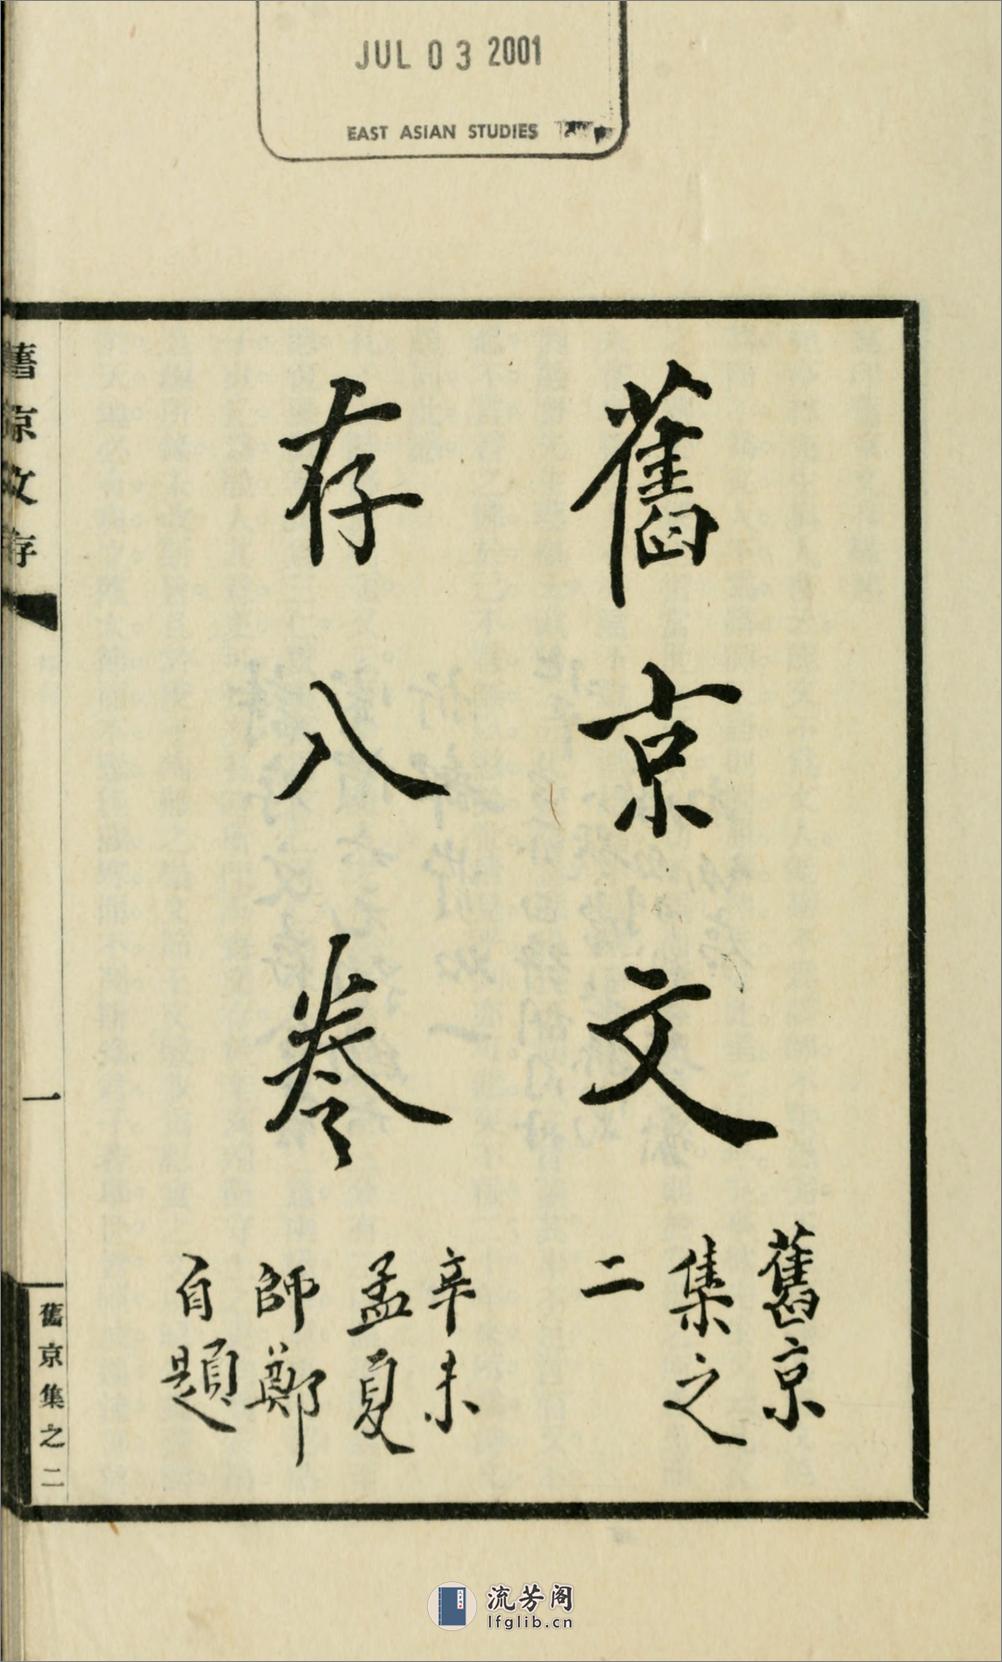 JUL 03 2001
EAST ASIAN STUDIES
舊京文
存八卷
舊京
集之
二
辛未
孟夏
師鄭
自題
舊京文存
一
舊京集之二
流芳阁
lfglib.cn